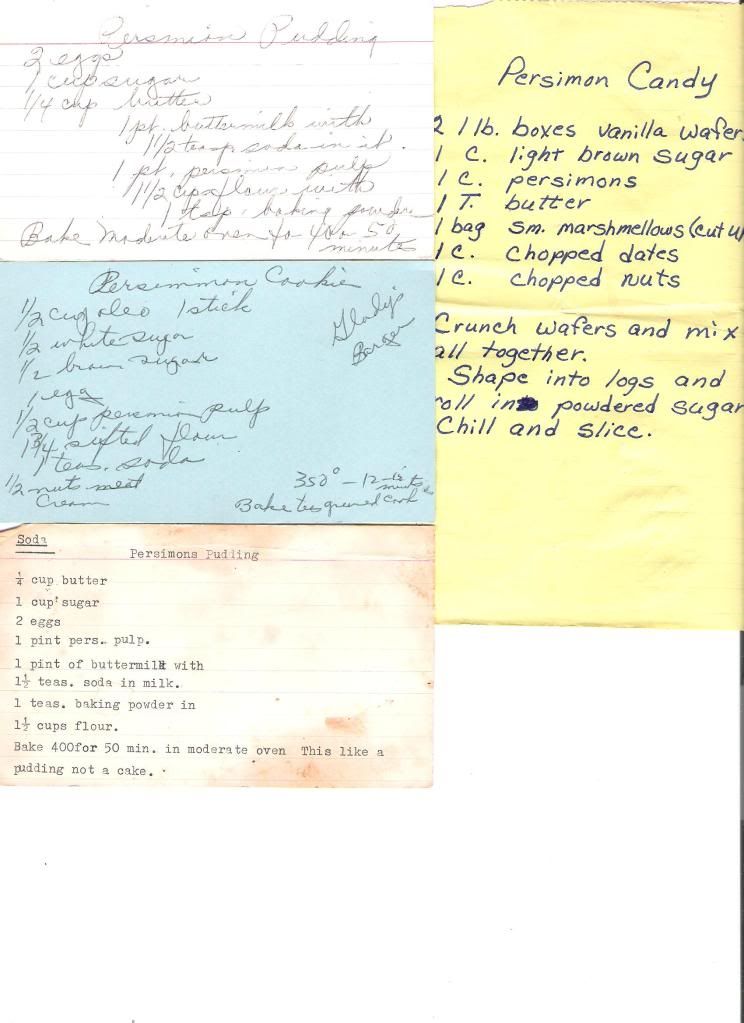 Persmion Pudding
2 eggs
1 cup sugar
1/4 cup butter
1 pt. buttermilk with
1 1/2 teasp. soda in it.
1 pt. persmion pulp
1 1/2 cups flour with
1 tsp. baking powder
Bake Moderate oven 40 to 50
minutes
Persimmon Cookie
1/2 cup oleo 1 stick
1/2 white sugar
1/2 brown sugar
Gladys
1 egg
1/2 cup persmion pulp
1 3/4 sifted flour
1 teas. soda
1/2 nuts meat
Cream
350° - 12-15
Bake greased
Soda
Persimons Pudding
¼ cup butter
1 cup sugar
2 eggs
1 pint pers. pulp.
1 pint of buttermilk with
1½ teas. soda in milk.
1 teas. baking powder in
1½ cups flour.
Bake 400for 50 min. in moderate oven This like a
pudding not a cake.
Persimon Candy
2 1 lb. boxes vanilla wafer
1 C. light brown sugar
1 C. persimons
1 T. butter
1 bag sm. marshmellows (cut u
1 C. chopped dates
1 C. chopped nuts
Crunch wafers and mix
all together.
Shape into logs and
roll in powdered sugar
Chill and slice.